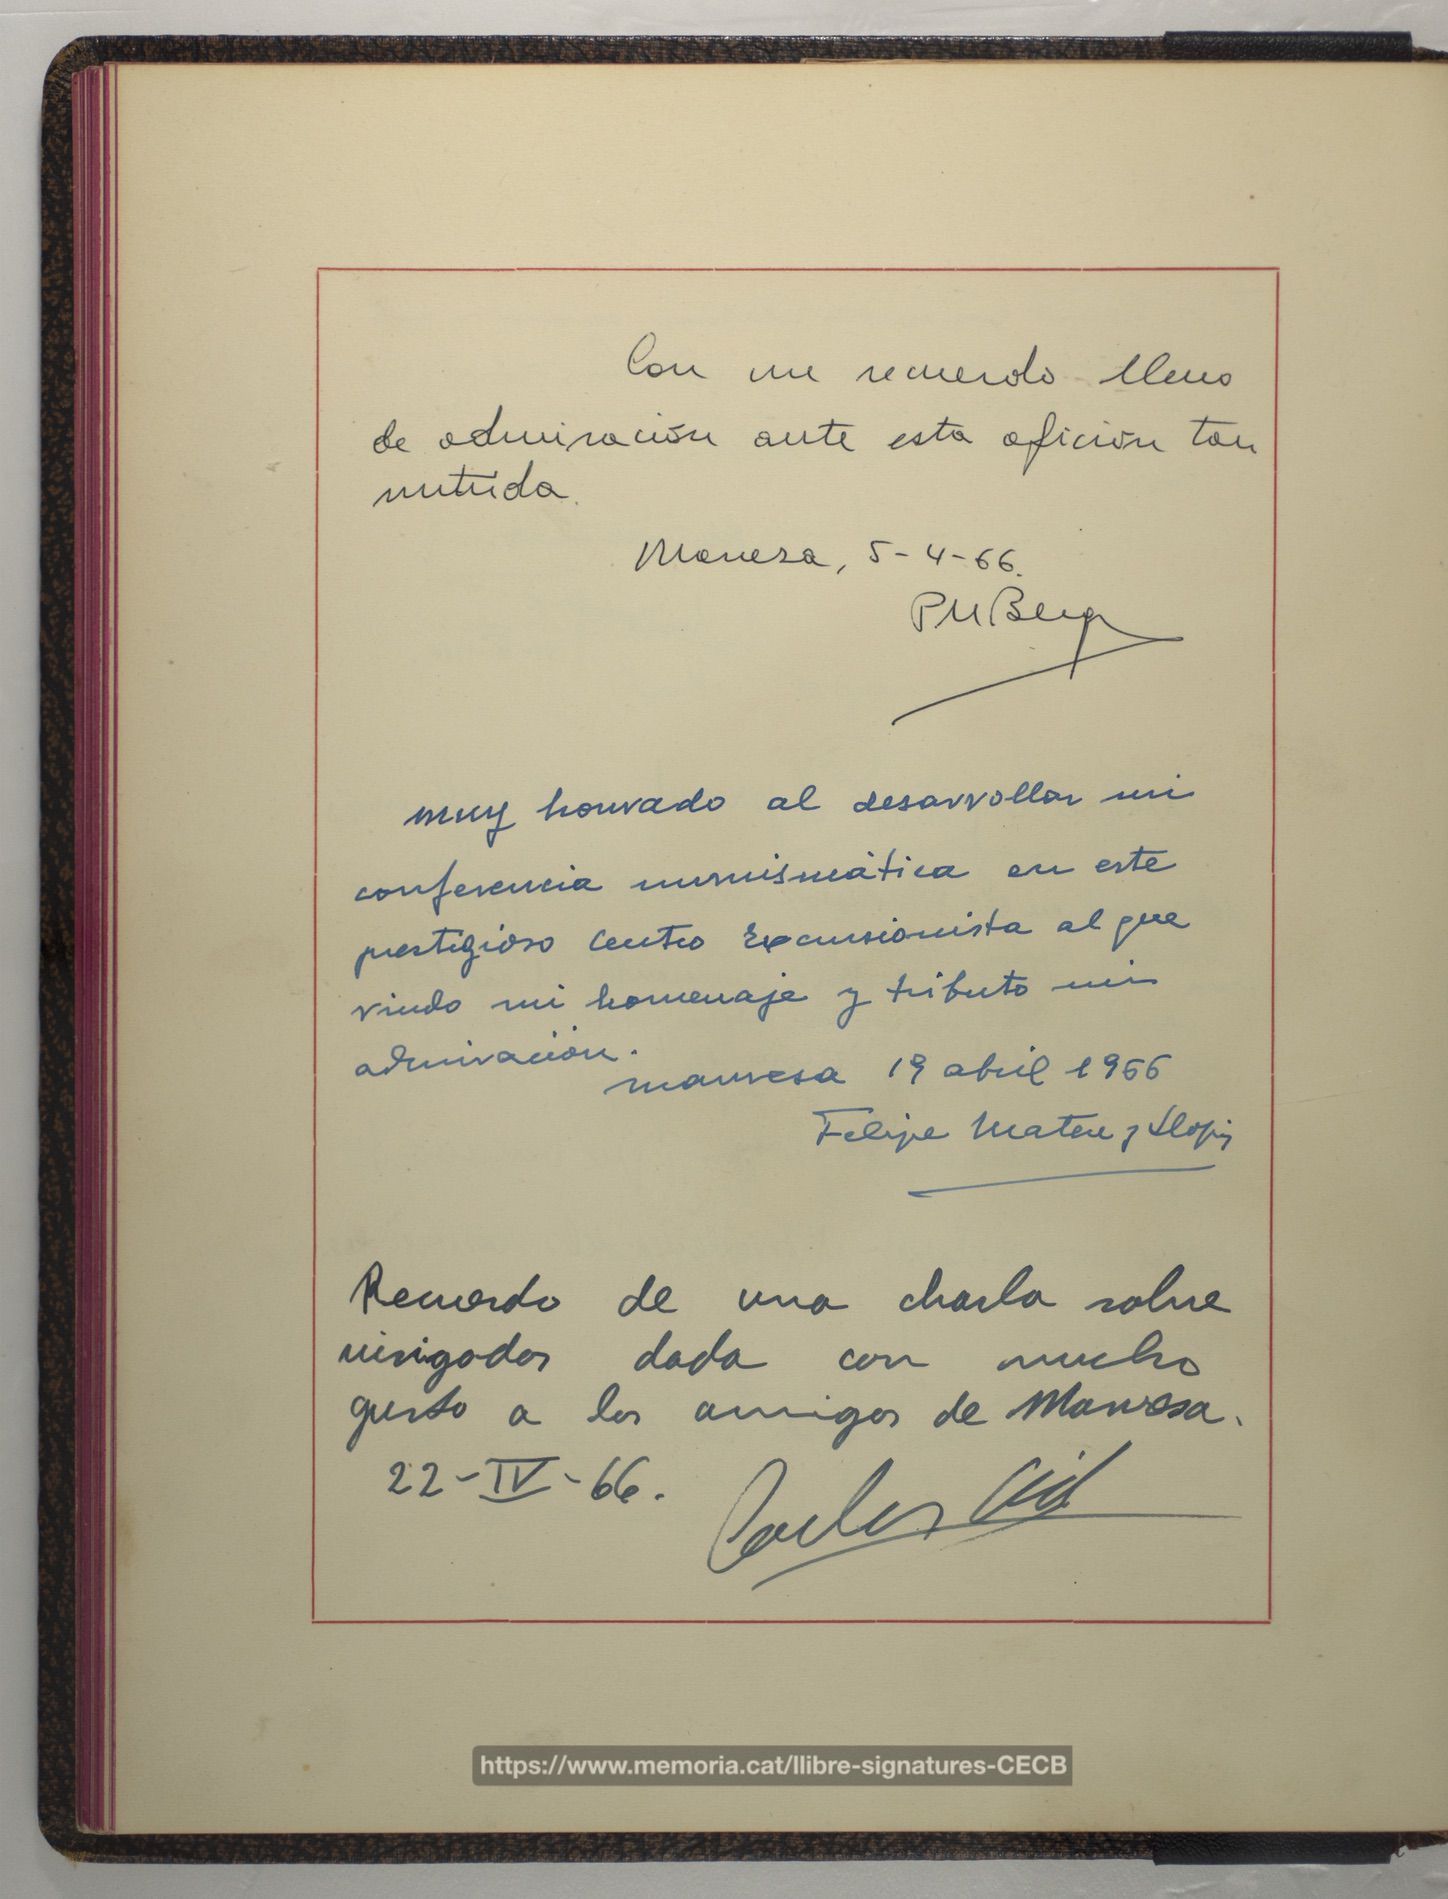 Con un recuerdo lleno
de admiración ante esta afición tan
nutrida.
Manresa, 5-4-66.
muy honrado al desarrollar mi
conferencia numismática en este
prestigioso Centro Excursionista al que
rindo mi homenaje y tributo mi
admiración.
manresa 19 abril 1966
Felipe Mateu y Llopis
Recuerdo de una charla sobre
visigodos dada con mucho
gusto a los amigos de Manresa.
22-IV-66.
Carlos Cid
https://www.memoria.cat/llibre-signatures-CECB